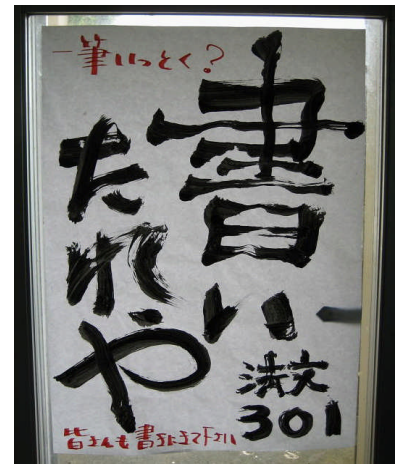 一筆いっとく?
書い
たれや
法文
301
皆さんも書きにきて下さい